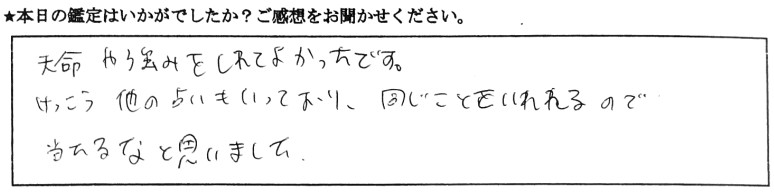 ★本日の鑑定はいかがでしたか？ご感想をお聞かせください。
天命 や強みをしれてよかったです。
けっこう 他の占いもいっており、同じことをいわれるので
当たるなと思いました.